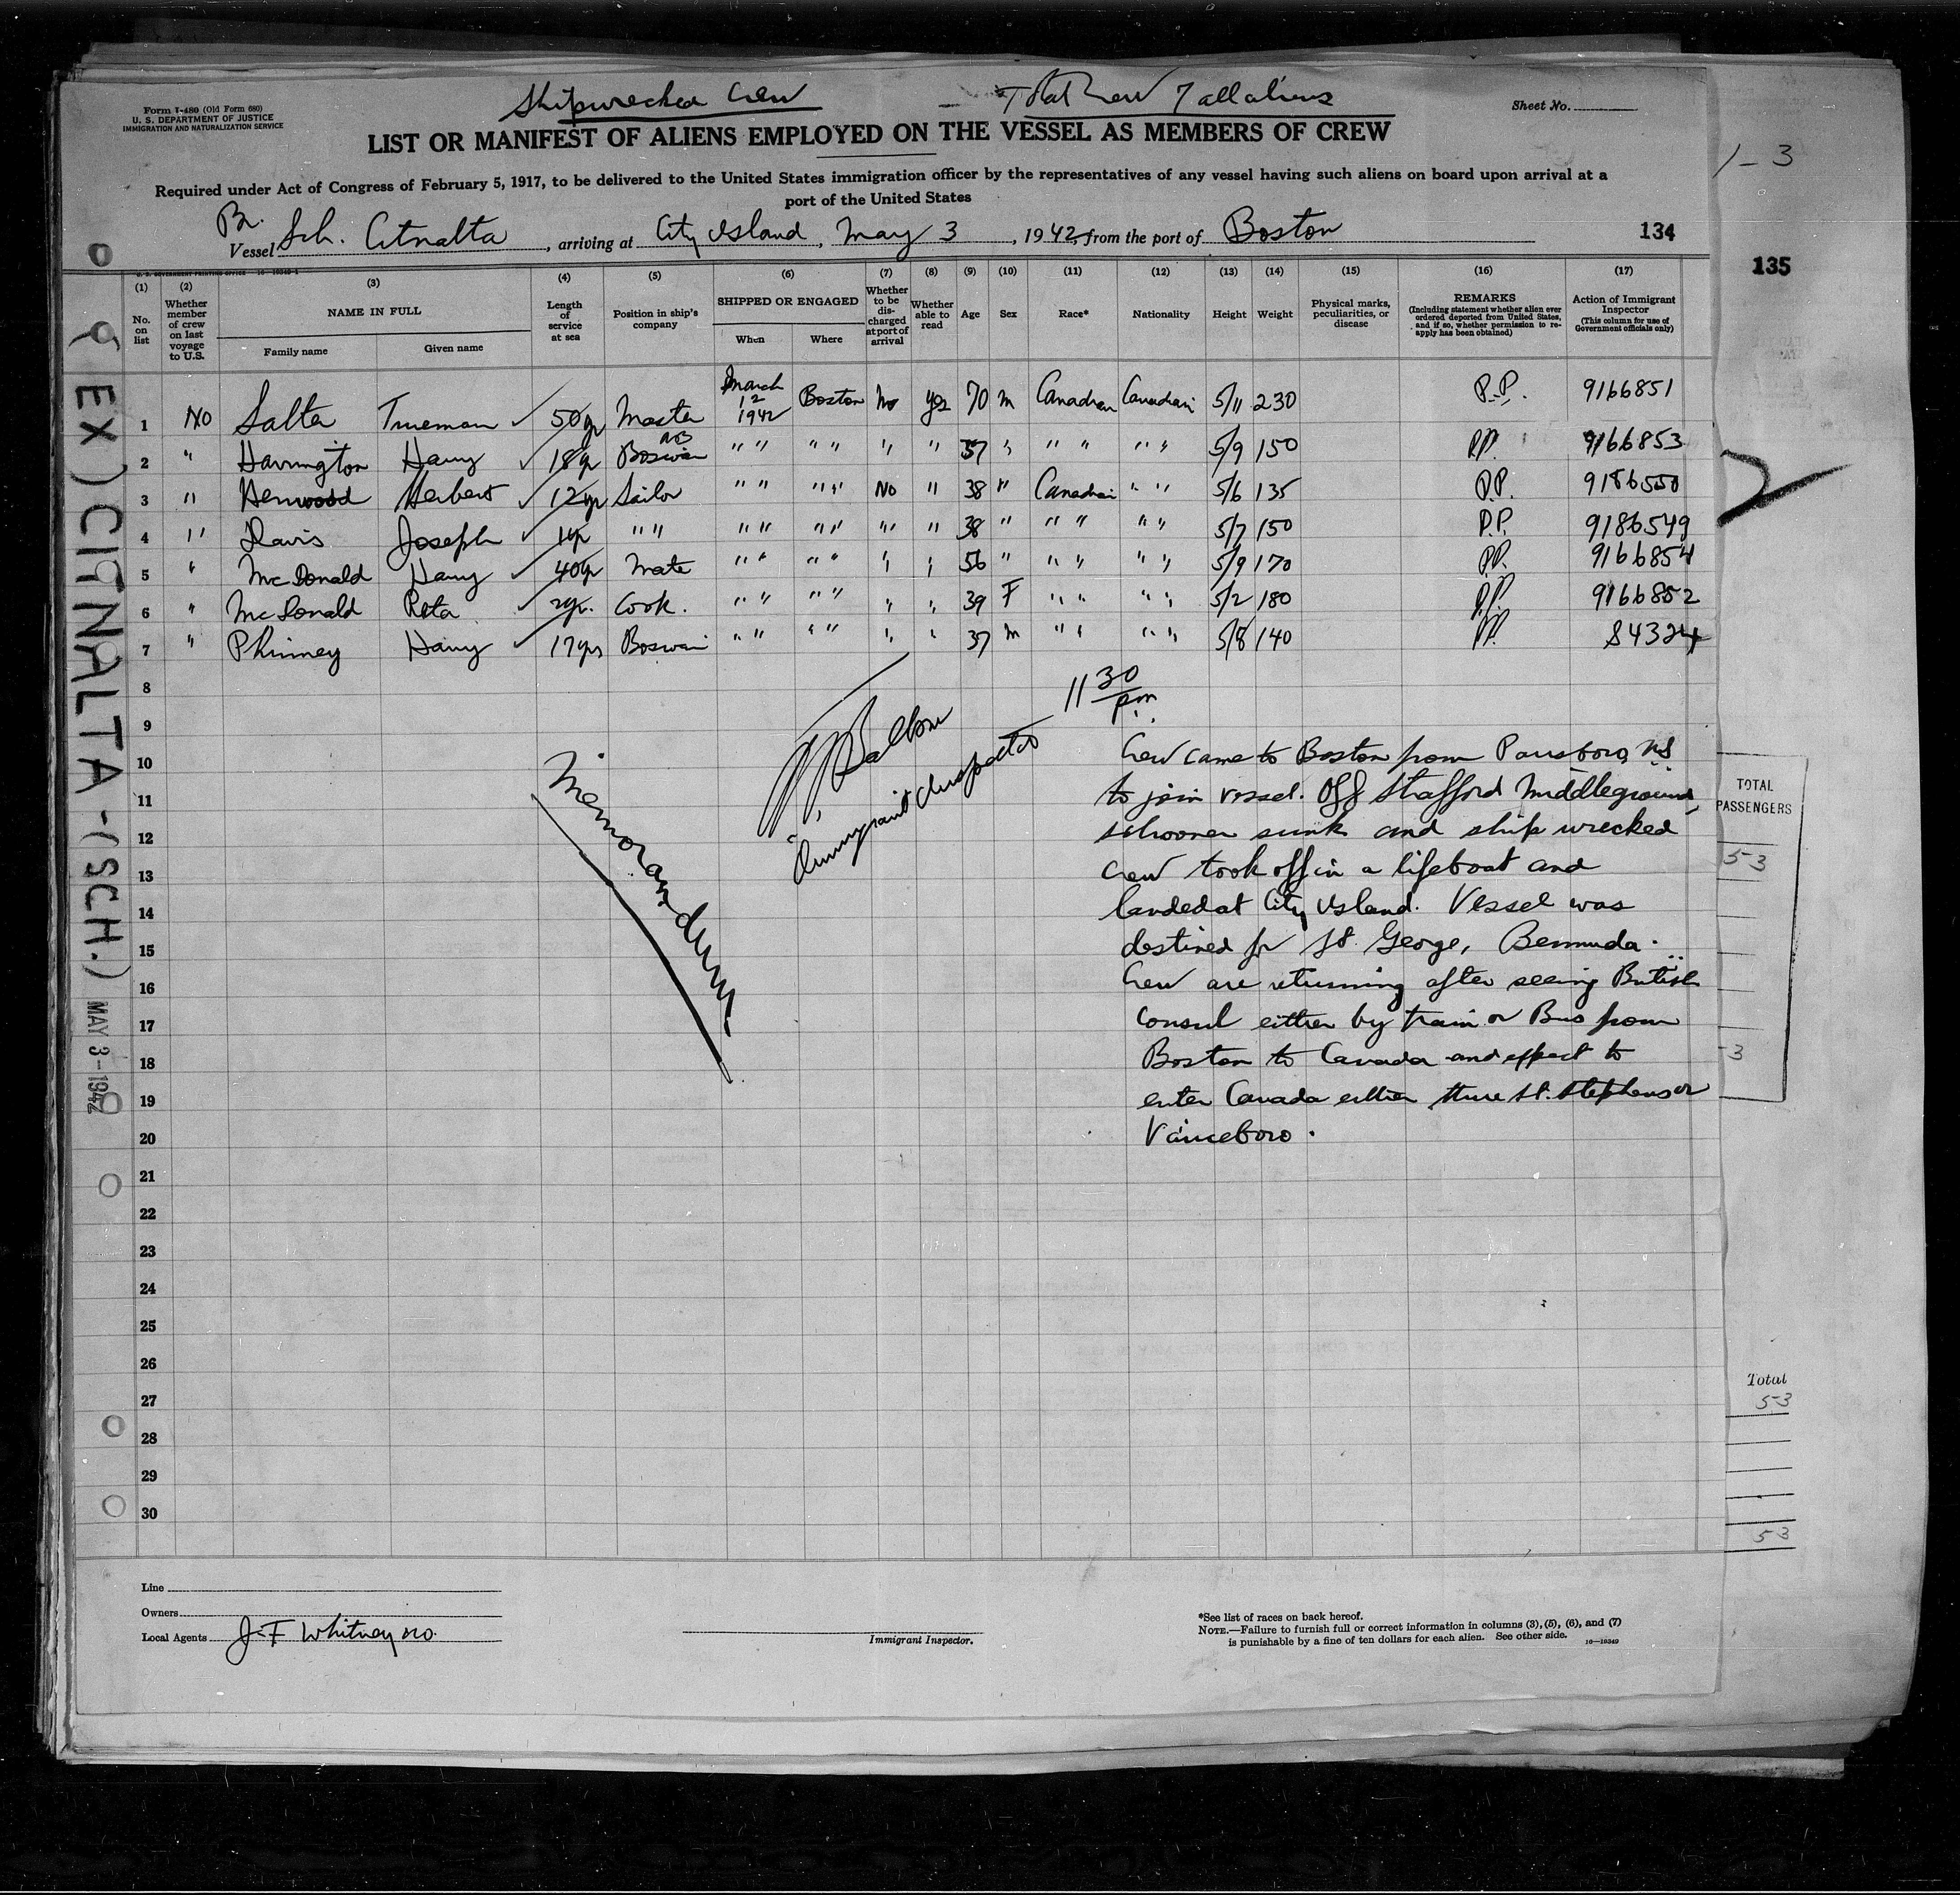 Shipwrecked Crew — Total Crew 7 all aliens
Form I-480 (Old Form 680)
U. S. DEPARTMENT OF JUSTICE
IMMIGRATION AND NATURALIZATION SERVICE
Sheet No.
LIST OR MANIFEST OF ALIENS EMPLOYED ON THE VESSEL AS MEMBERS OF CREW
1-3
Required under Act of Congress of February 5, 1917, to be delivered to the United States immigration officer by the representatives of any vessel having such aliens on board upon arrival at a
port of the United States
Br.
Vessel Sch. Citnalta, arriving at City Island, May 3, 1942, from the port of Boston
134
135
U. S. GOVERNMENT PRINTING OFFICE
(1) (2) (3) (4) (5) (6) (7) (8) (9) (10) (11) (12) (13) (14) (15) (16) (17)
No. on list
Whether member of crew on last voyage to U.S.
NAME IN FULL
Family name Given name
Length of service at sea
Position in ship's company
SHIPPED OR ENGAGED
When Where
Whether to be discharged at port of arrival
Whether able to read
Age
Sex
Race*
Nationality
Height
Weight
Physical marks, peculiarities, or disease
REMARKS
(Including statement whether alien ever ordered deported from United States, and if so, whether permission to reapply has been obtained)
Action of Immigrant Inspector
(This column for use of Government officials only)
1 No Salter Trueman 50yr Master March 12 1942 Boston No yes 70 M Canadian Canadian 5/11 230 P.P. 9166851
2 " Harrington Harry 18yr Boswain AB " " " " " " 37 " " " " " 5/9 150 P.P. 9166853
3 " Henwood Herbert 12yr Sailor " " " " No " 38 " Canadian " " 5/6 135 P.P. 9186550
4 " Davis Joseph 1yr " " " " " " " " 38 " " " " " 5/7 150 P.P. 9186549
5 " McDonald Harry 40yr Mate " " " " " " 56 " " " " " 5/9 170 P.P. 9166854
6 " McDonald Reta 2yr. Cook. " " " " " " 39 F " " " " 5/2 180 P.P. 9166852
7 " Phinney Harry 17yrs Boswain " " " " " " 37 M " " " " 5/8 140 P.P. 84324
8
9
10
11
12
13
14
15
16
17
18
19
20
21
22
23
24
25
26
27
28
29
30
11 30 pm
Immigrant Inspector
Memorandum
Crew came to Boston from Parrsboro, NS
to join vessel. Off Strafford Middleground,
schooner sunk and ship wrecked
crew took off in a lifeboat and
landed at City Island. Vessel was
destined for St. George, Bermuda.
Crew are returning after seeing British
Consul either by train or Bus from
Boston to Canada and expect to
enter Canada either thru St. Stephens or
Vanceboro.
EX) CITNALTA - (SCH.) MAY 3 - 1942
TOTAL
PASSENGERS
53
3
Total
53
53
Line
Owners
Local Agents J. F. Whitney
Immigrant Inspector.
*See list of races on back hereof.
NOTE.—Failure to furnish full or correct information in columns (3), (5), (6), and (7)
is punishable by a fine of ten dollars for each alien. See other side. 16—19349